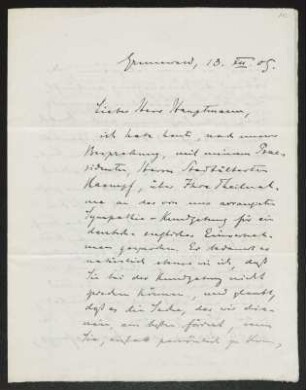 Grunewald, 13. XII 05.
Lieber Herr Hauptmann,
ich habe heut, nach unserer
Besprechung, mit meinem Prae-
sidenten, Herrn Stadtältesten
Kaempf, über Ihre Theilnah-
me an der von uns
Sympathie-Kundgebung für ein
deutsch-englisches Einverneh-
men gesprochen. Er bedauert es
natürlich ebenso wie ich, daß
Sie bei der Kundgebung nicht
sprechen können, und glaubt,
daß es die Sache, der wir
am besten fördert, wenn
Sie, einfach persönlich